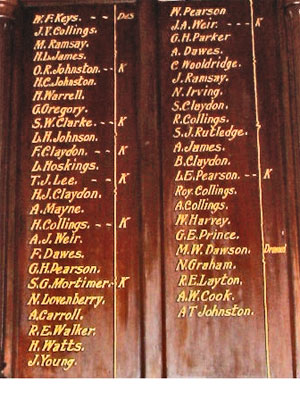 W.F. Keys. -- Des
J.V. Collings.
M. Ramsay.
H.L. James.
O.R. Johnston. -- K
H.C. Johnston.
H. Warrell.
G. Gregory.
S.W. Clarke. -- K
L.H. Johnson.
F. Claydon. -- K
L. Hoskings.
T.J. Lee. -- K
H.J. Claydon.
A. Mayne.
H. Collings. -- K
A.J. Weir.
F. Dawes.
G.H. Pearson.
S.G. Mortimer. - K
N. Lowenberry.
A. Carroll.
R.E. Walker.
H. Watts.
J. Young.
W. Pearson
J.A. Weir. -- K
G.H. Parker
A. Dawes.
C Wooldridge.
J. Ramsay.
N. Irving.
S. Claydon.
R. Collings.
S.J. Rutledge.
A. James.
B. Claydon.
L.E. Pearson. -- K
Roy. Collings.
A. Collings.
W. Harvey.
G.E. Prince.
M.W. Dawson. Drowned
N. Graham.
R.E. Layton.
A.W. Cook.
A T Johnston.